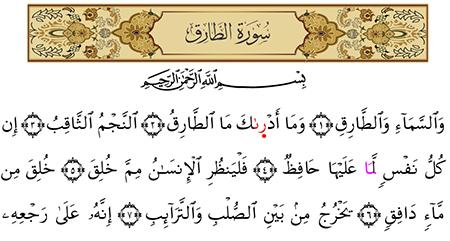 سُورَةُ الطَّارِقِ
بِسْمِ ٱللَّهِ ٱلرَّحْمَٰنِ ٱلرَّحِيمِ
وَٱلسَّمَآءِ وَٱلطَّارِقِ ﴿١﴾ وَمَآ أَدْرىٰكَ مَا ٱلطَّارِقُ ﴿٢﴾ ٱلنَّجْمُ ٱلثَّاقِبُ ﴿٣﴾ إِن
كُلُّ نَفْسٍ لَّمَا عَلَيْهَا حَافِظٌ ﴿٤﴾ فَلْيَنظُرِ ٱلْإِنسَٰنُ مِمَّ خُلِقَ ﴿٥﴾ خُلِقَ مِن
مَّآءٍ دَافِقٍ ﴿٦﴾ يَخْرُجُ مِنۢ بَيْنِ ٱلصُّلْبِ وَٱلتَّرَآئِبِ ﴿٧﴾ إِنَّهُۥ عَلَىٰ رَجْعِهِۦ